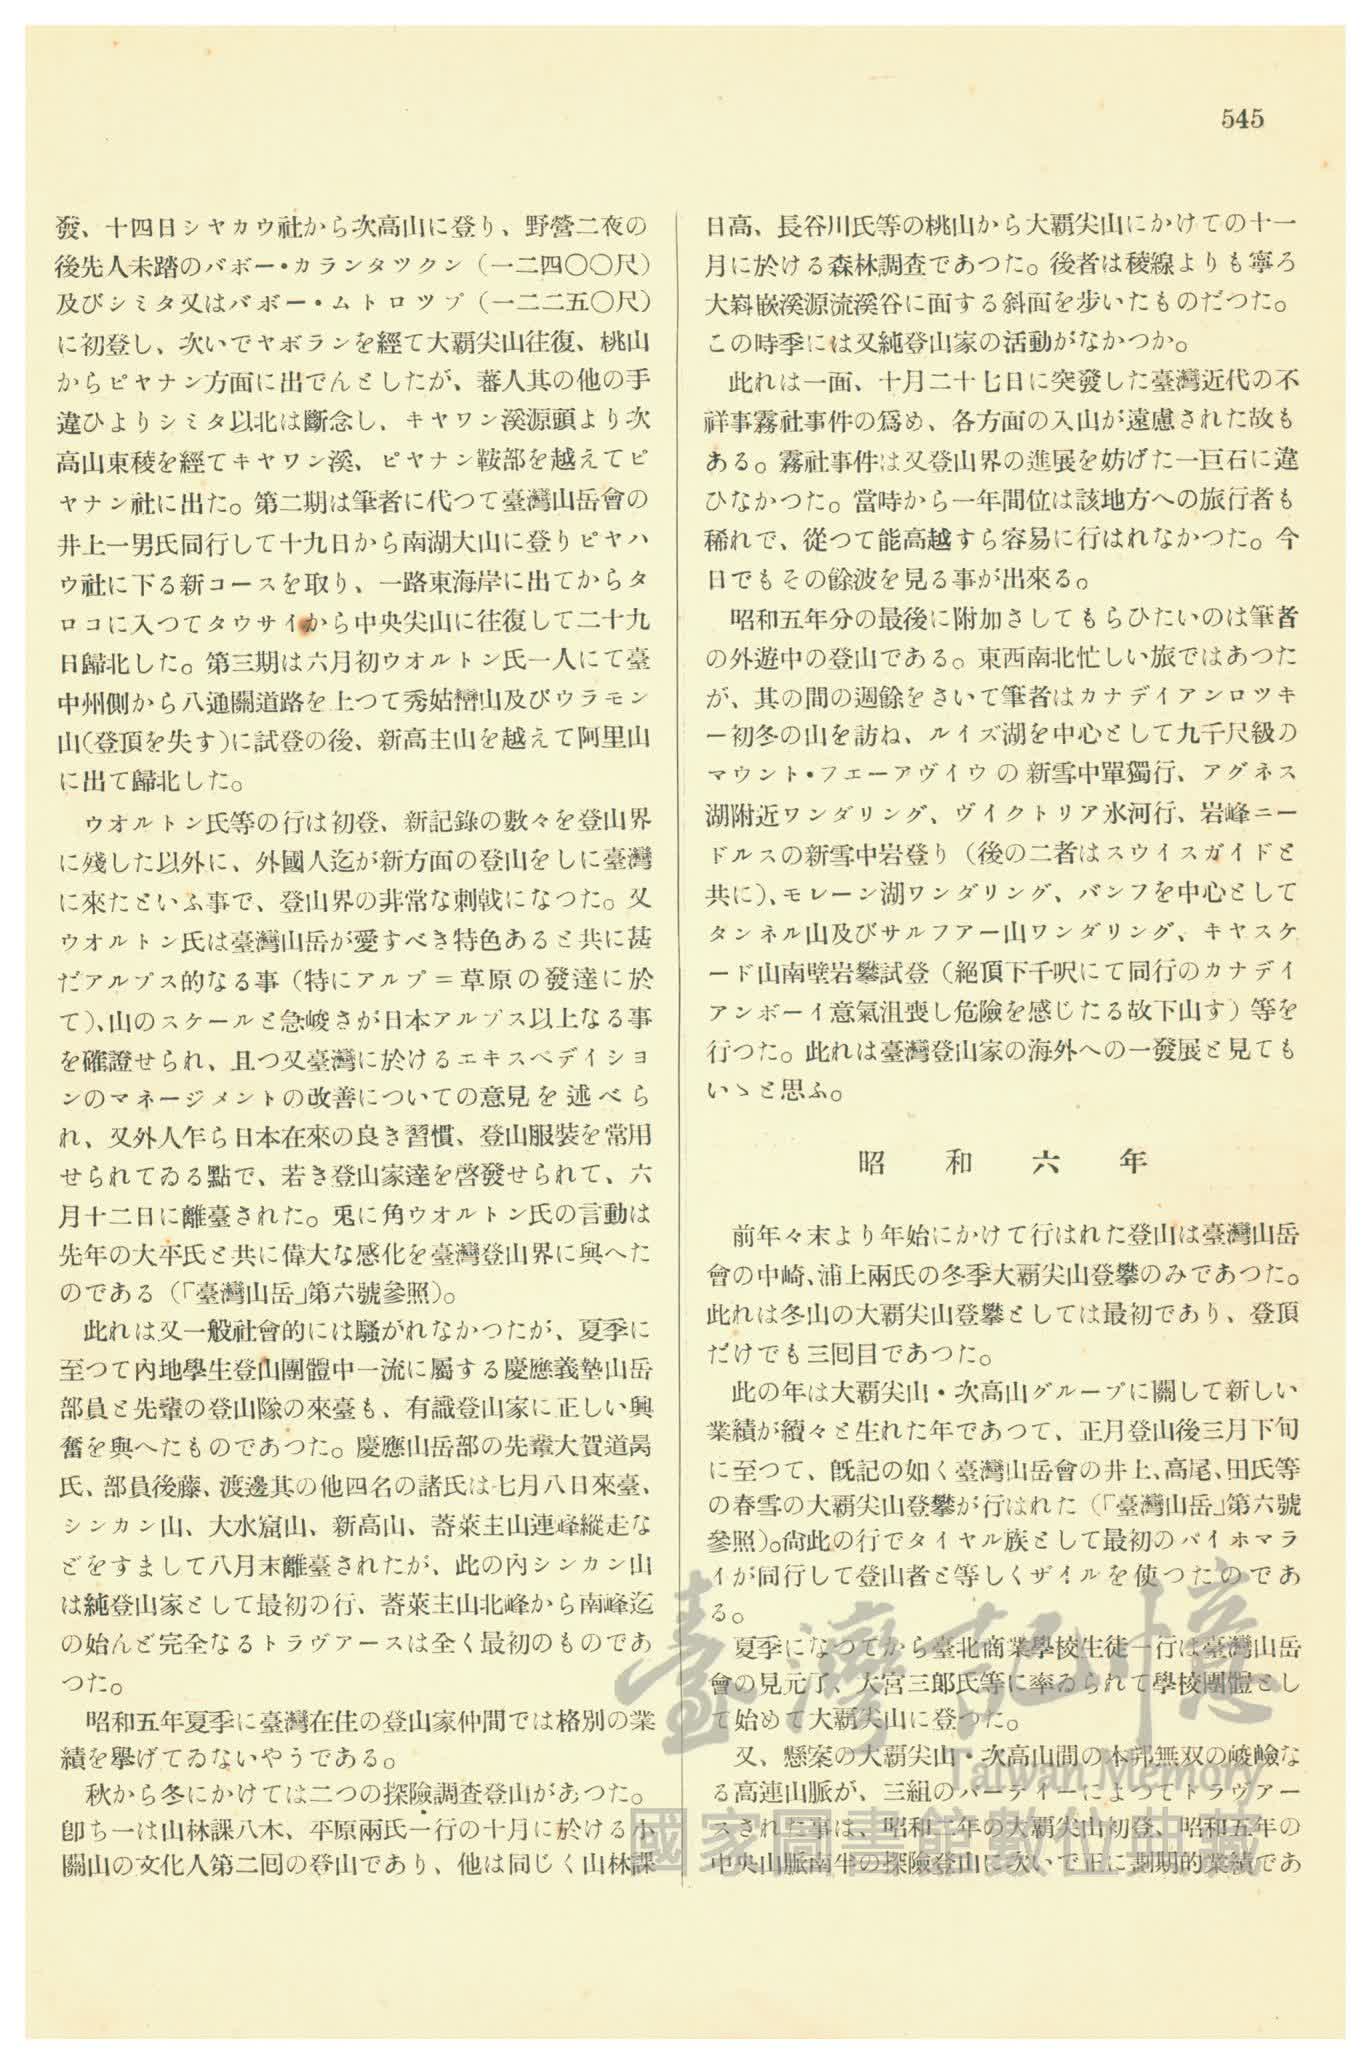 545
發、十四日シヤカウ社から次高山に登り、野營二夜の
後先人未踏のバボー・カランタツクン（一二四〇〇尺）
及びシミタ又はバボー・ムトロツプ（一二二五〇尺）
に初登し、次いでヤボランを經て大覇尖山往復、桃山
からピヤナン方面に出でんとしたが、蕃人其の他の手
違ひよりシミタ以北は斷念し、キヤワン溪源頭より次
高山東稜を經てキヤワン溪、ピヤナン鞍部を越えてピ
ヤナン社に出た。第二期は筆者に代つて臺灣山岳會の
井上一男氏同行して十九日から南湖大山に登りピヤハ
ウ社に下る新コースを取り、一路東海岸に出てからタ
ロコに入つてタウサイから中央尖山に往復して二十九
日歸北した。第三期は六月初ウオルトン氏一人にて臺
中州側から八通關道路を上つて秀姑巒山及びウラモン
山（登頂を失す）に試登の後、新高主山を越えて阿里山
に出て歸北した。
ウオルトン氏等の行は初登、新記錄の數々を登山界
に殘した以外に、外國人迄が新方面の登山をしに臺灣
に來たといふ事で、登山界の非常な刺戟になつた。又
ウオルトン氏は臺灣山岳が愛すべき特色あると共に甚
だアルプス的なる事（特にアルプ＝草原の發達に於
て）、山のスケールと急峻さが日本アルプス以上なる事
を確證せられ、且つ又臺灣に於けるエキスペデイショ
ンのマネージメントの改善についての意見を述べら
れ、又外人乍ら日本在來の良き習慣、登山服裝を常用
せられてゐる點で、若き登山家達を啓發せられて、六
月十二日に離臺された。兎に角ウオルトン氏の言動は
先年の大平氏と共に偉大な感化を臺灣登山界に與へた
のである（「臺灣山岳」第六號參照）。
此れは又一般社會的には騷がれなかつたが、夏季に
至つて內地學生登山團體中一流に屬する慶應義塾山岳
部員と先輩の登山隊の來臺も、有識登山家に正しい興
奮を與へたものであつた。慶應山岳部の先輩大賀道昺
氏、部員後藤、渡邊其の他四名の諸氏は七月八日來臺、
シンカン山、大水窟山、新高山、蕃萊主山連峰縱走な
どをすまして八月末離臺されたが、此の內シンカン山
は純登山家として最初の行、蕃萊主山北峰から南峰迄
の始んど完全なるトラヴアースは全く最初のものであ
つた。
昭和五年夏季に臺灣在住の登山家仲間では格別の業
績を擧げてゐないやうである。
秋から冬にかけては二つの探險調査登山があつた。
卽ち一は山林課八木、平原兩氏一行の十月に於ける小
關山の文化人第二回の登山であり、他は同じく山林課
日高、長谷川氏等の桃山から大覇尖山にかけての十一
月に於ける森林調査であつた。後者は稜線よりも寧ろ
大嵙嵌溪源流溪谷に面する斜面を步いたものだつた。
この時季には又純登山家の活動がなかつか。
此れは一面、十月二十七日に突發した臺灣近代の不
祥事霧社事件の爲め、各方面の入山が遠慮された故も
ある。霧社事件は又登山界の進展を妨げた一巨石に違
ひなかつた。當時から一年間位は該地方への旅行者も
稀れで、從つて能高越すら容易に行はれなかつた。今
日でもその餘波を見る事が出來る。
昭和五年分の最後に附加さしてもらひたいのは筆者
の外遊中の登山である。東西南北忙しい旅ではあつた
が、其の間の週餘をさいて筆者はカナデイアンロツキ
ー初冬の山を訪ね、ルイズ湖を中心として九千尺級の
マウント・フエーアヴイウの新雪中單獨行、アグネス
湖附近ワンダリング、ヴイクトリア氷河行、岩峰ニー
ドルスの新雪中岩登り（後の二者はスウイスガイドと
共に）、モレーン湖ワンダリング、バンフを中心として
タンネル山及びサルフアー山ワンダリング、キヤスケ
ード山南壁岩攀試登（絕頂下千呎にて同行のカナデイ
アンボーイ意氣沮喪し危險を感じたる故下山す）等を
行つた。此れは臺灣登山家の海外への一發展と見ても
いゝと思ふ。
昭和六年
前年々末より年始にかけて行はれた登山は臺灣山岳
會の中崎、浦上兩氏の冬季大覇尖山登攀のみであつた。
此れは冬山の大覇尖山登攀としては最初であり、登頂
だけでも三回目であつた。
此の年は大覇尖山・次高山グループに關して新しい
業績が續々と生れた年であつて、正月登山後三月下旬
に至つて、旣記の如く臺灣山岳會の井上、高尾、田氏等
の春雪の大覇尖山登攀が行はれた（「臺灣山岳」第六號
參照）。尙此の行でタイヤル族として最初のパイホマラ
イが同行して登山者と等しくザイルを使つたのであ
る。
夏季になつてから臺北商業學校生徒一行は臺灣山岳
會の見元了、大宮三郎氏等に率ゐられて學校團體とし
て始めて大覇尖山に登つた。
又、懸案の大覇尖山・次高山間の本邦無双の峻嶮な
る高連山脈が、三組のパーテイーによつてトラヴアー
スされた事は、昭和二年の大覇尖山初登、昭和五年の
中央山脈南半の探險登山に次いで正に劃期的業績であ
臺灣記憶
Taiwan Memory
國家圖書館數位典藏